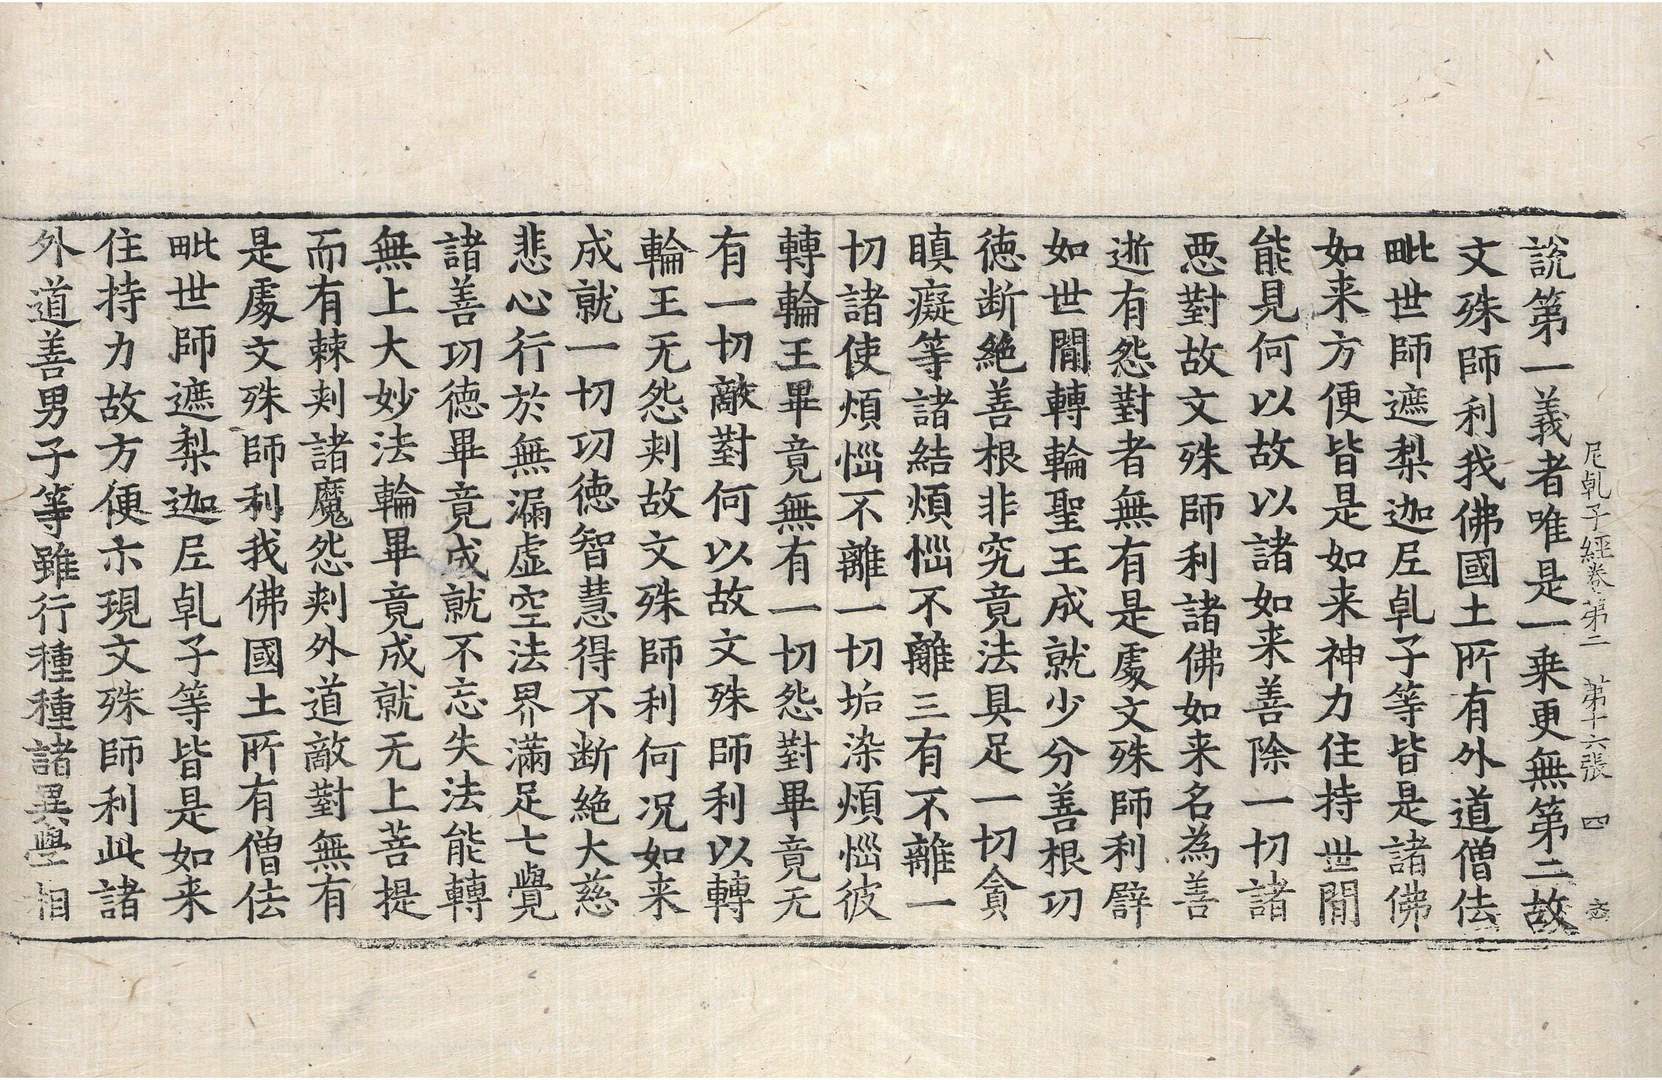 尼乹子經卷第二　第十六張　四
說第一義者唯是一乘更無第二故
文殊師利我佛國土所有外道僧佉
毗世師遮梨迦𡰱乹子等皆是諸佛
如来方便皆是如来神力住持世間
能見何以故以諸如来善除一切諸
惡對故文殊師利諸佛如来名為善
逝有怨對者無有是處文殊師利譬
如世間轉輪聖王成就少分善根功
徳断絶善根非究竟法具足一切貪
瞋癡等諸結煩惱不離三有不離一
切諸使煩惱不離一切垢染煩惱彼
轉輪王畢竟無有一切怨對畢竟无
有一切敵對何以故文殊師利以轉
輪王无怨刾故文殊師利何况如来
成就一切功徳智慧得不断絶大慈
悲心行於無漏虚空法界滿足七覺
諸善功徳畢竟成就不忘失法能轉
無上大妙法輪畢竟成就无上菩提
而有棘刾諸魔怨刾外道敵對無有
是處文殊師利我佛國土所有僧佉
毗世師遮梨迦𡰱乹子等皆是如来
住持力故方便亦現文殊師利此諸
外道善男子等雖行種種諸異學相